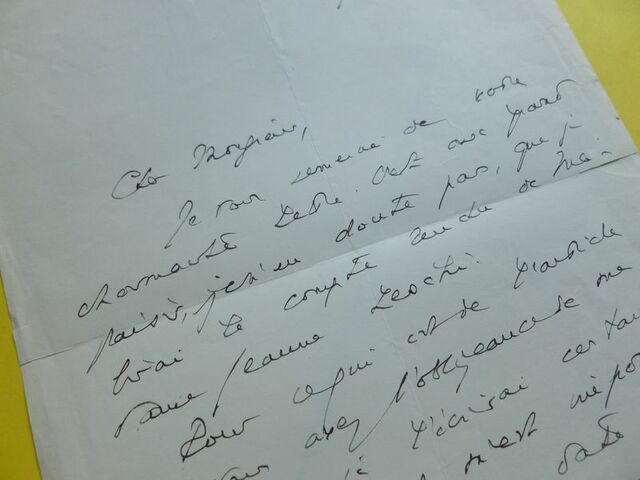 Cher Monsieur,
Je vous remercie de votre
charmante lettre. C'est avec grand
plaisir, je n'en doute pas, que je
lirai le compte rendu de Ma-
dame Jeanne
Pour ce qui est de
vous avez l'obligeance de me
je l'écrirai certai
m'est
date